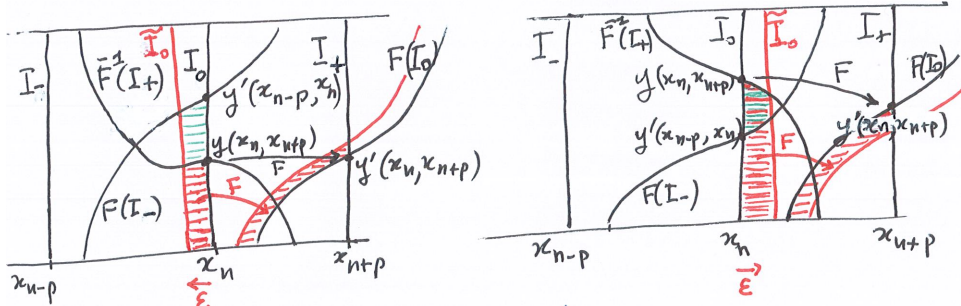 I_-
F^{-1}(I_+)
Ĩ_0
I_0
I_+
F(I_0)
y'(x_{n-p}, x_n)
y(x_n, x_{n+p})
F
y'(x_n, x_{n+p})
F
F(I_-)
x_{n-p}
x_n
x_{n+p}
ε
I_-
F^{-1}(I_+)
I_0
Ĩ_0
I_+
F(I_0)
F
y(x_n, x_{n+p})
y'(x_{n-p}, x_n)
y'(x_n, x_{n+p})
F
F(I_-)
x_{n-p}
x_n
x_{n+p}
ε